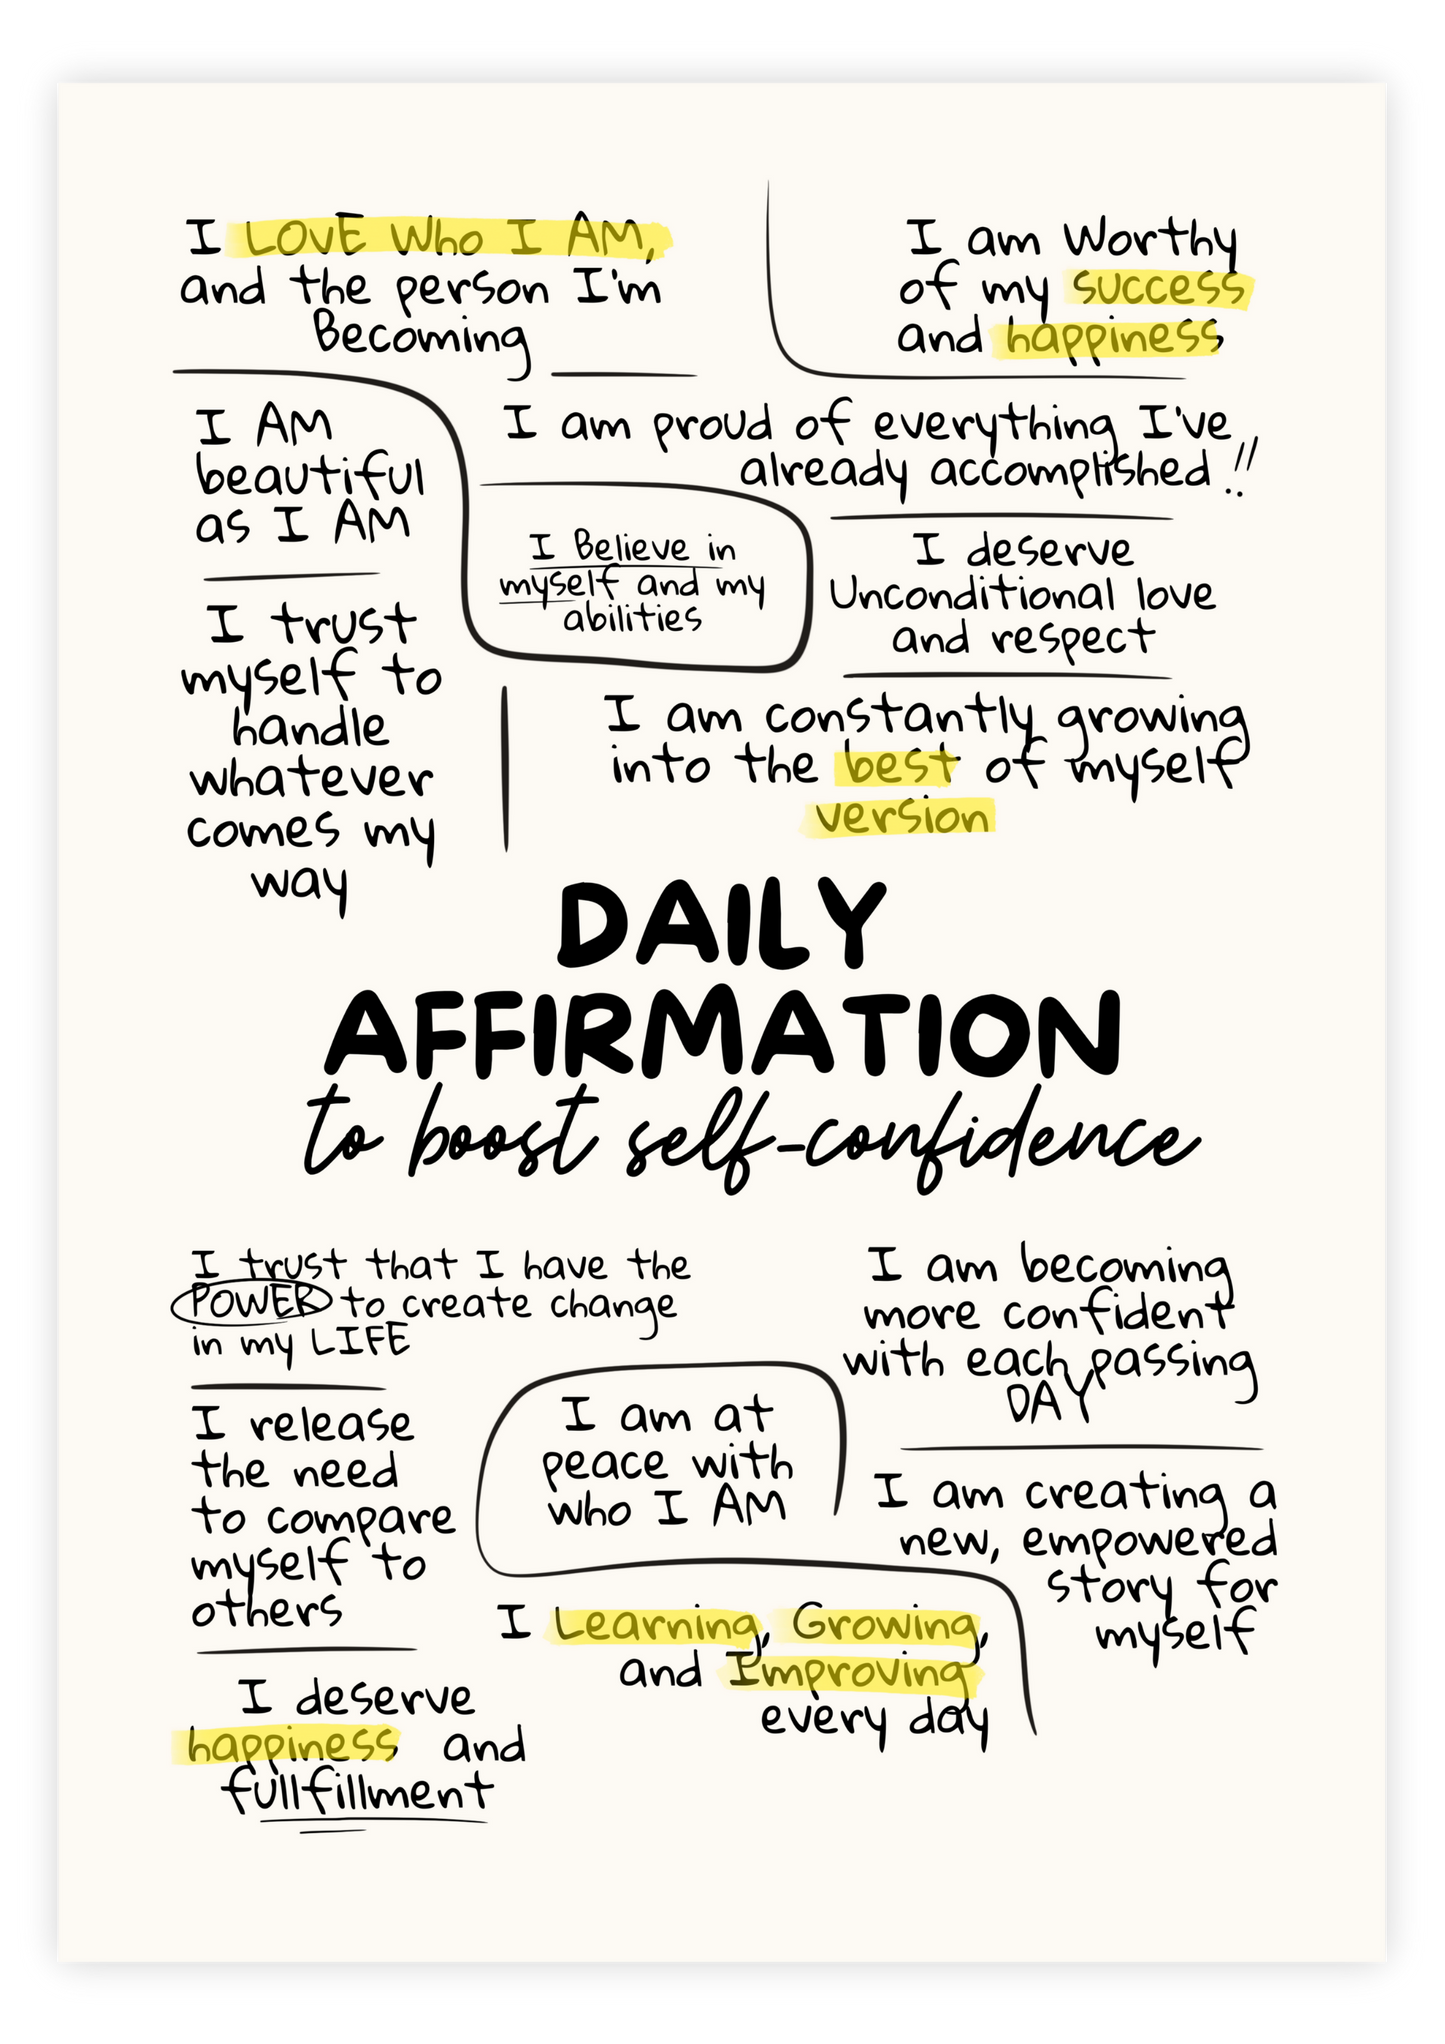 I LOVE Who I AM,
and the person I'm
Becoming
I am Worthy
of my success
and happiness
I AM
beautiful
as I AM
I am proud of everything I've
already accomplished!!
I Believe in
myself and my
abilities
I deserve
Unconditional love
and respect
I trust
myself to
handle
whatever
comes my
way
I am constantly growing
into the best of myself
version
DAILY
AFFIRMATION
to boost self-confidence
I trust that I have the
POWER to create change
in my LIFE
I am becoming
more confident
with each passing
DAY
I release
the need
to compare
myself to
others
I am at
peace with
who I AM
I am creating a
new, empowered
story for
myself
I Learning, Growing,
and Improving
every day
I deserve
happiness and
fullfillment